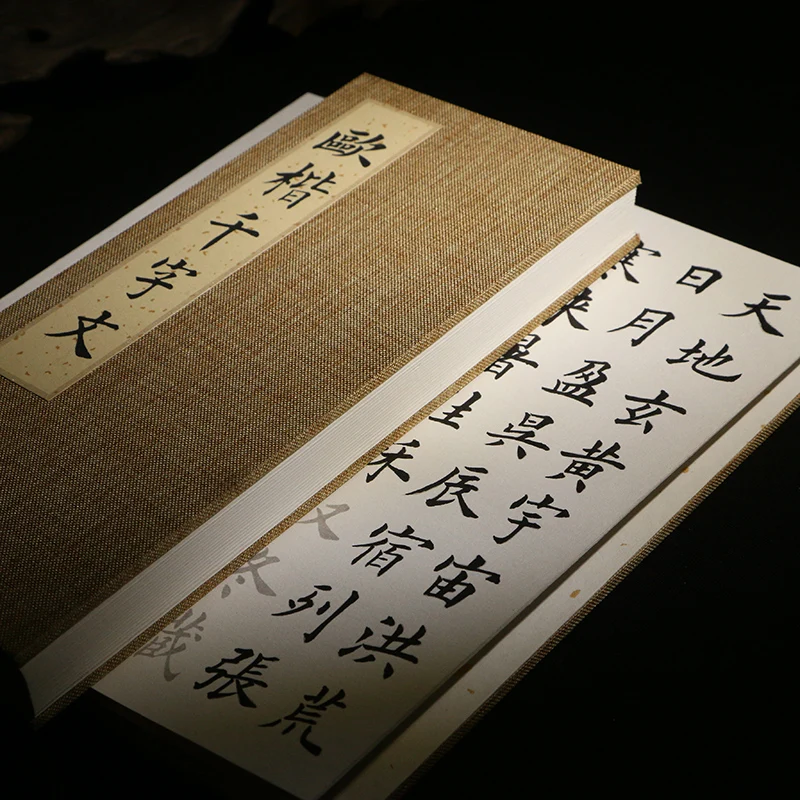 歐楷千字文
天地玄黄宇宙洪荒
日月盈昃辰宿列張
寒来暑往秋收冬藏